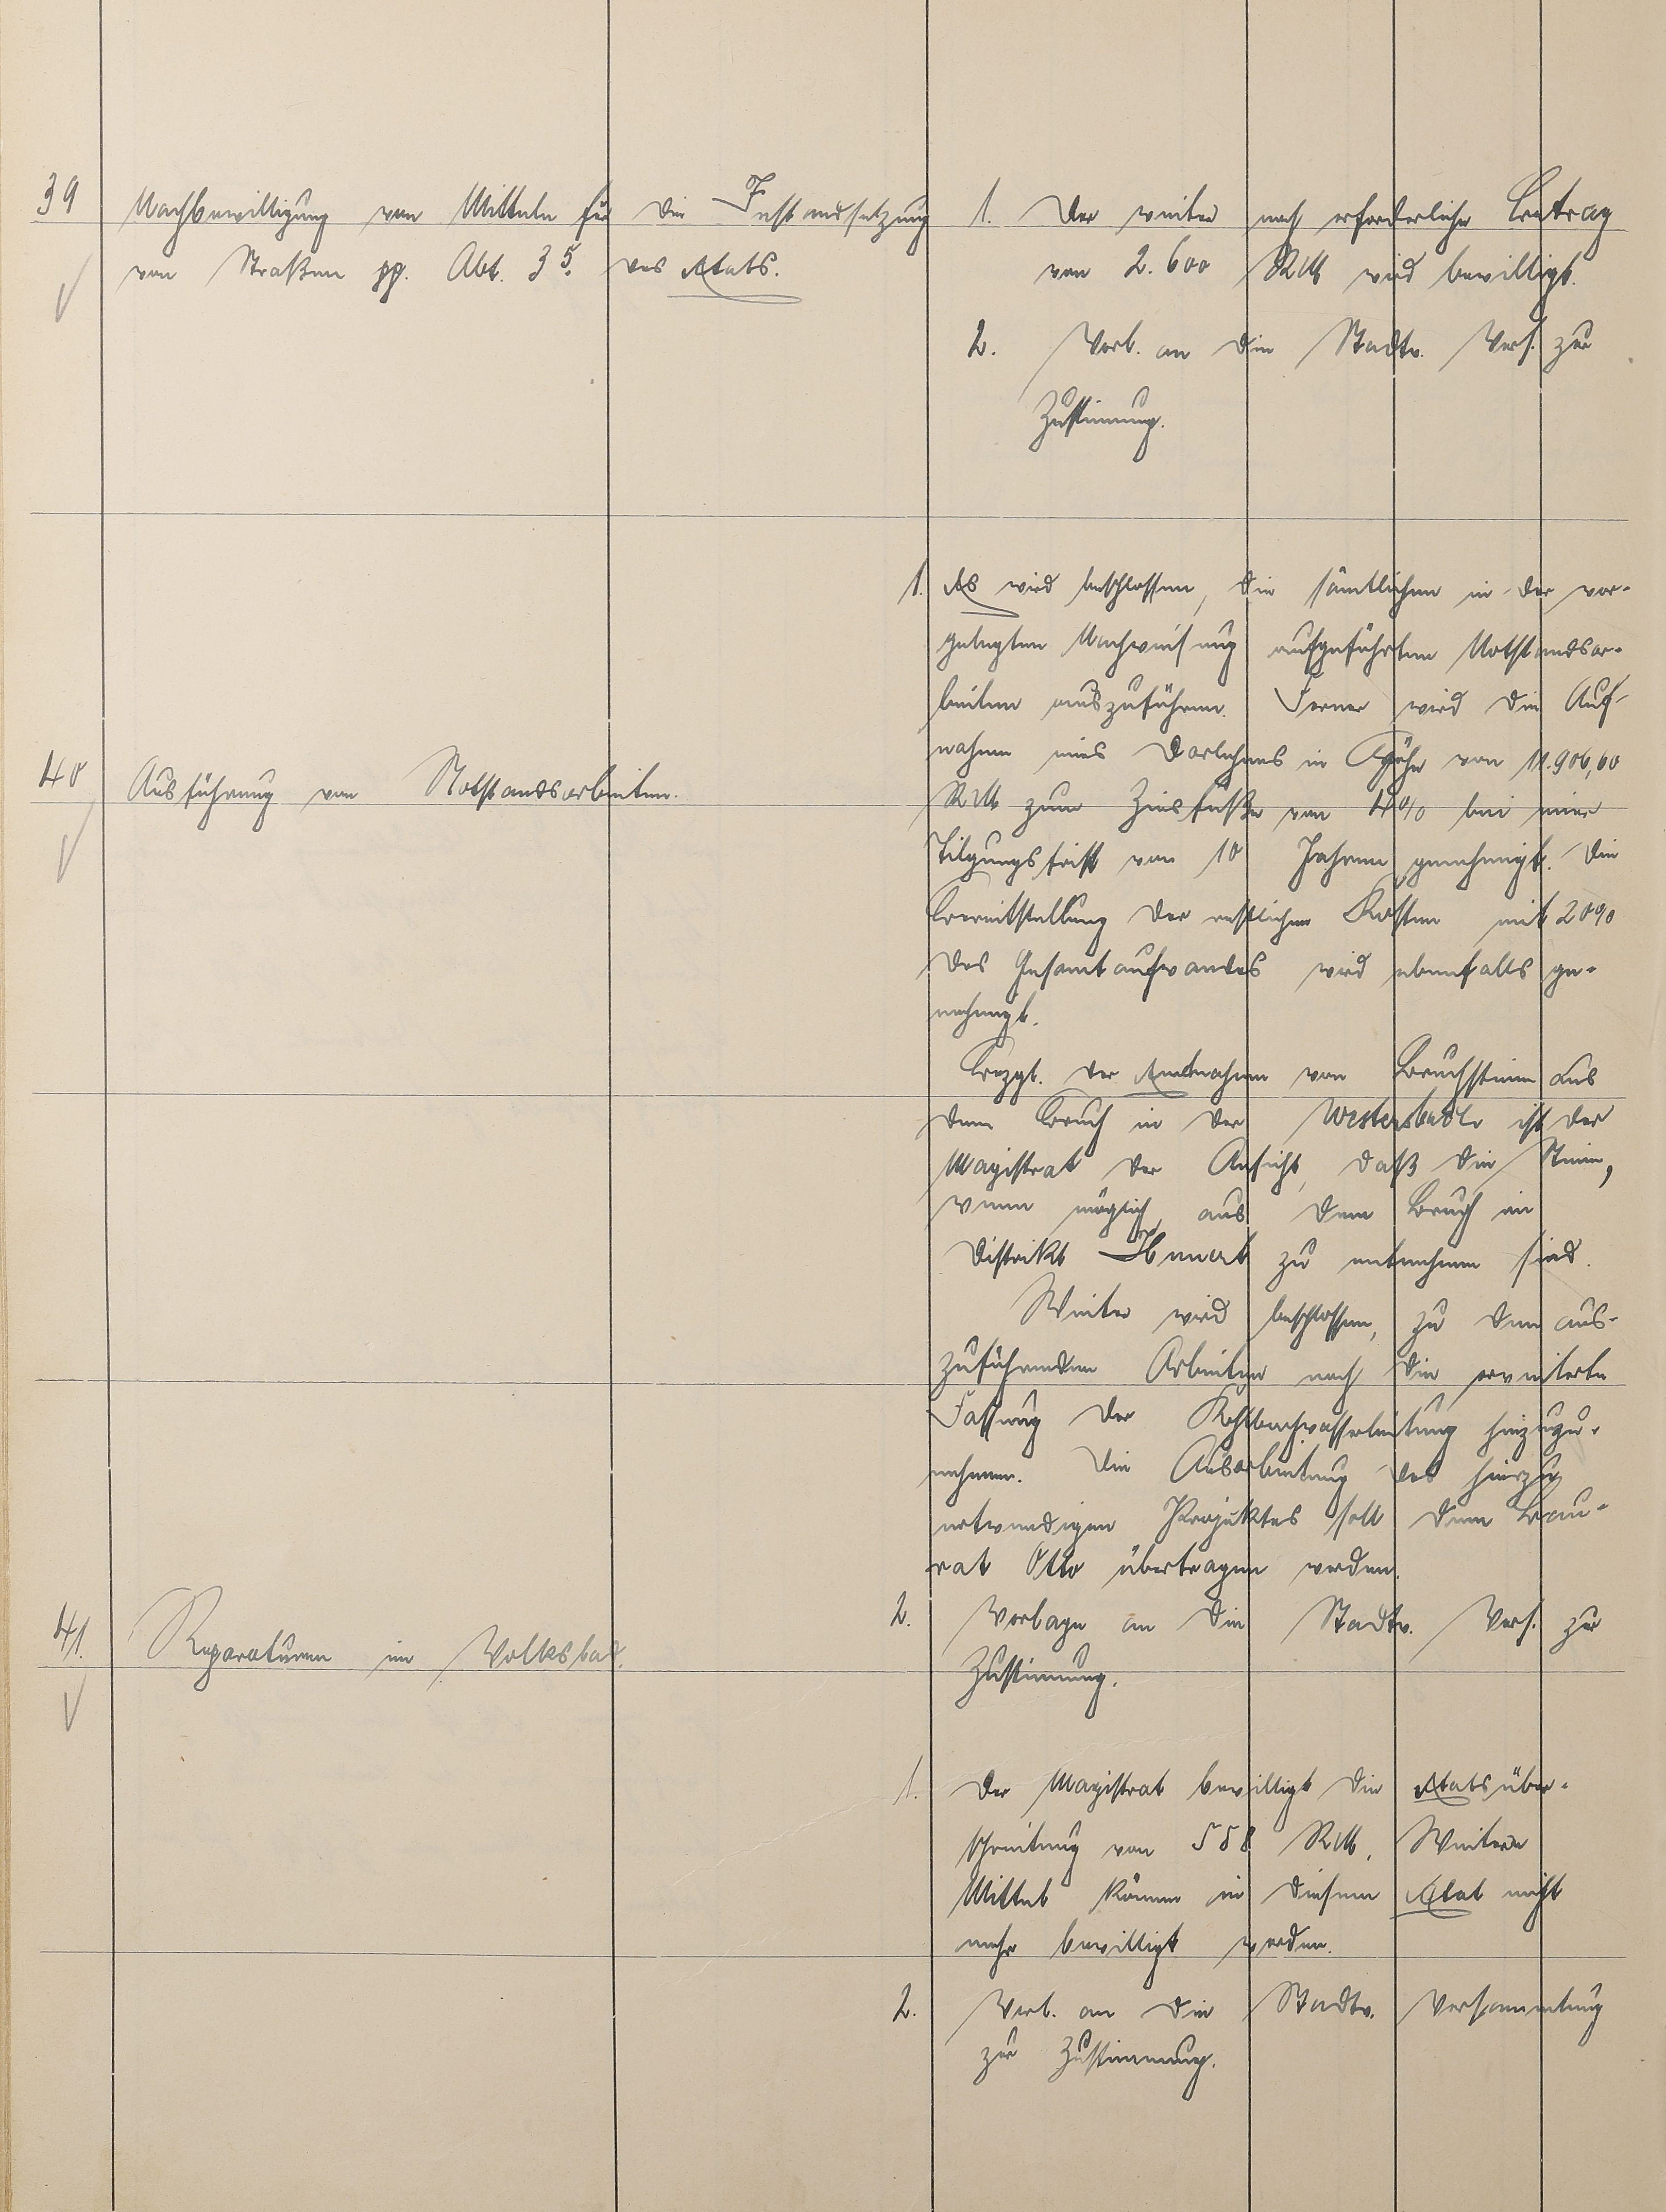 39
Nachbewilligung von Mitteln für die Instandsetzung
von Straßen pp. Abt. 3 5. des Etats.
1. Der weiter noch erforderliche Betrag
von 2.600 RM wird bewilligt.
2. Vorl. an die Stadtv. Vers. zur
Zustimmung.
40
Ausführung von Notstandsarbeiten.
1. Es wird beschlossen, die sämtlichen in der vor-
gelegten Nachweisung aufgeführten Notstandsar-
beiten auszuführen. Ferner wird die Auf-
nahme eines Darlehnes in Höhe von 11.906,60
RM zum Zinsfuße von 4% bei einer
Tilgungsfrist von 10 Jahren genehmigt. Die
Bereitstellung der restlichen Kosten mit 20%
des Gesamtaufwandes wird ebenfalls ge-
nehmigt.
Bezgl. der Entnahme von Bruchsteinen aus
dem Bruch in der ist der
Magistrat der Ansicht, daß die Steine,
wenn möglich aus dem Bruch im
Distrikt zu entnehmen sind.
Weiter wird beschlossen, zu den aus-
zuführenden Arbeiten noch die erweiterte
Fassung der Kohlbachwasserleitung hinzuzu-
nehmen. Die Ausarbeitung des hierzu
notwendigen Projektes soll dem Bau-
rat Otto übertragen werden.
2. Vorlage an die Stadtv. Vers. zur
Zustimmung.
41.
Reparaturen im Volksbad.
1. Der Magistrat bewilligt die Etatsüber-
schreitung von 558 RM. Weitere
Mittel können in diesem Etat nicht
mehr bewilligt werden.
2. Vorl. an die Stadtv. Versammlung
zur Zustimmung.